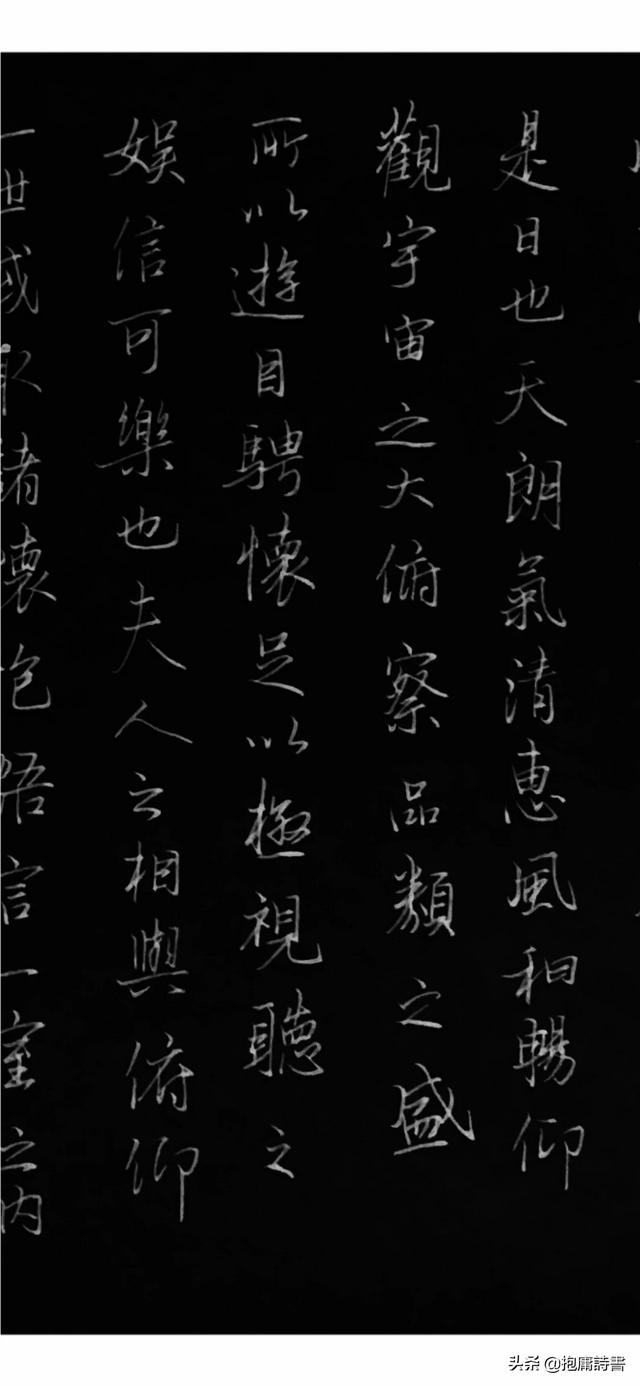 是日也天朗氣清惠風和暢仰
觀宇宙之大俯察品類之盛
所以遊目騁懷足以極視聽之
娛信可樂也夫人之相與俯仰
一世或取諸懷抱悟言一室之内
头条 @抱庸詩書